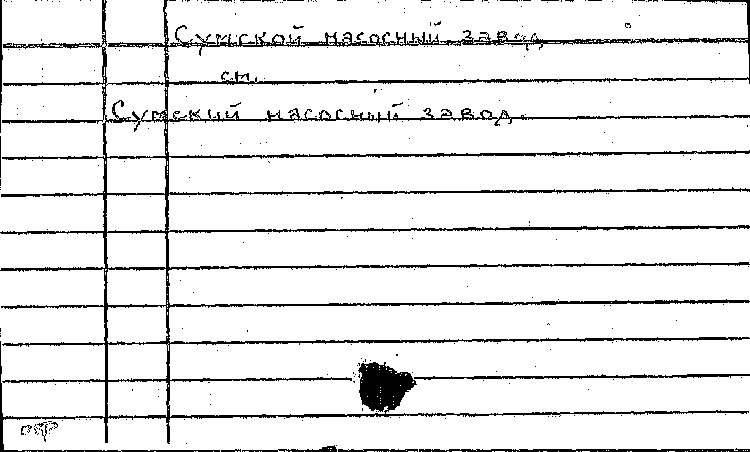 Сумской насосный завод
см.
Сумский насосный завод.